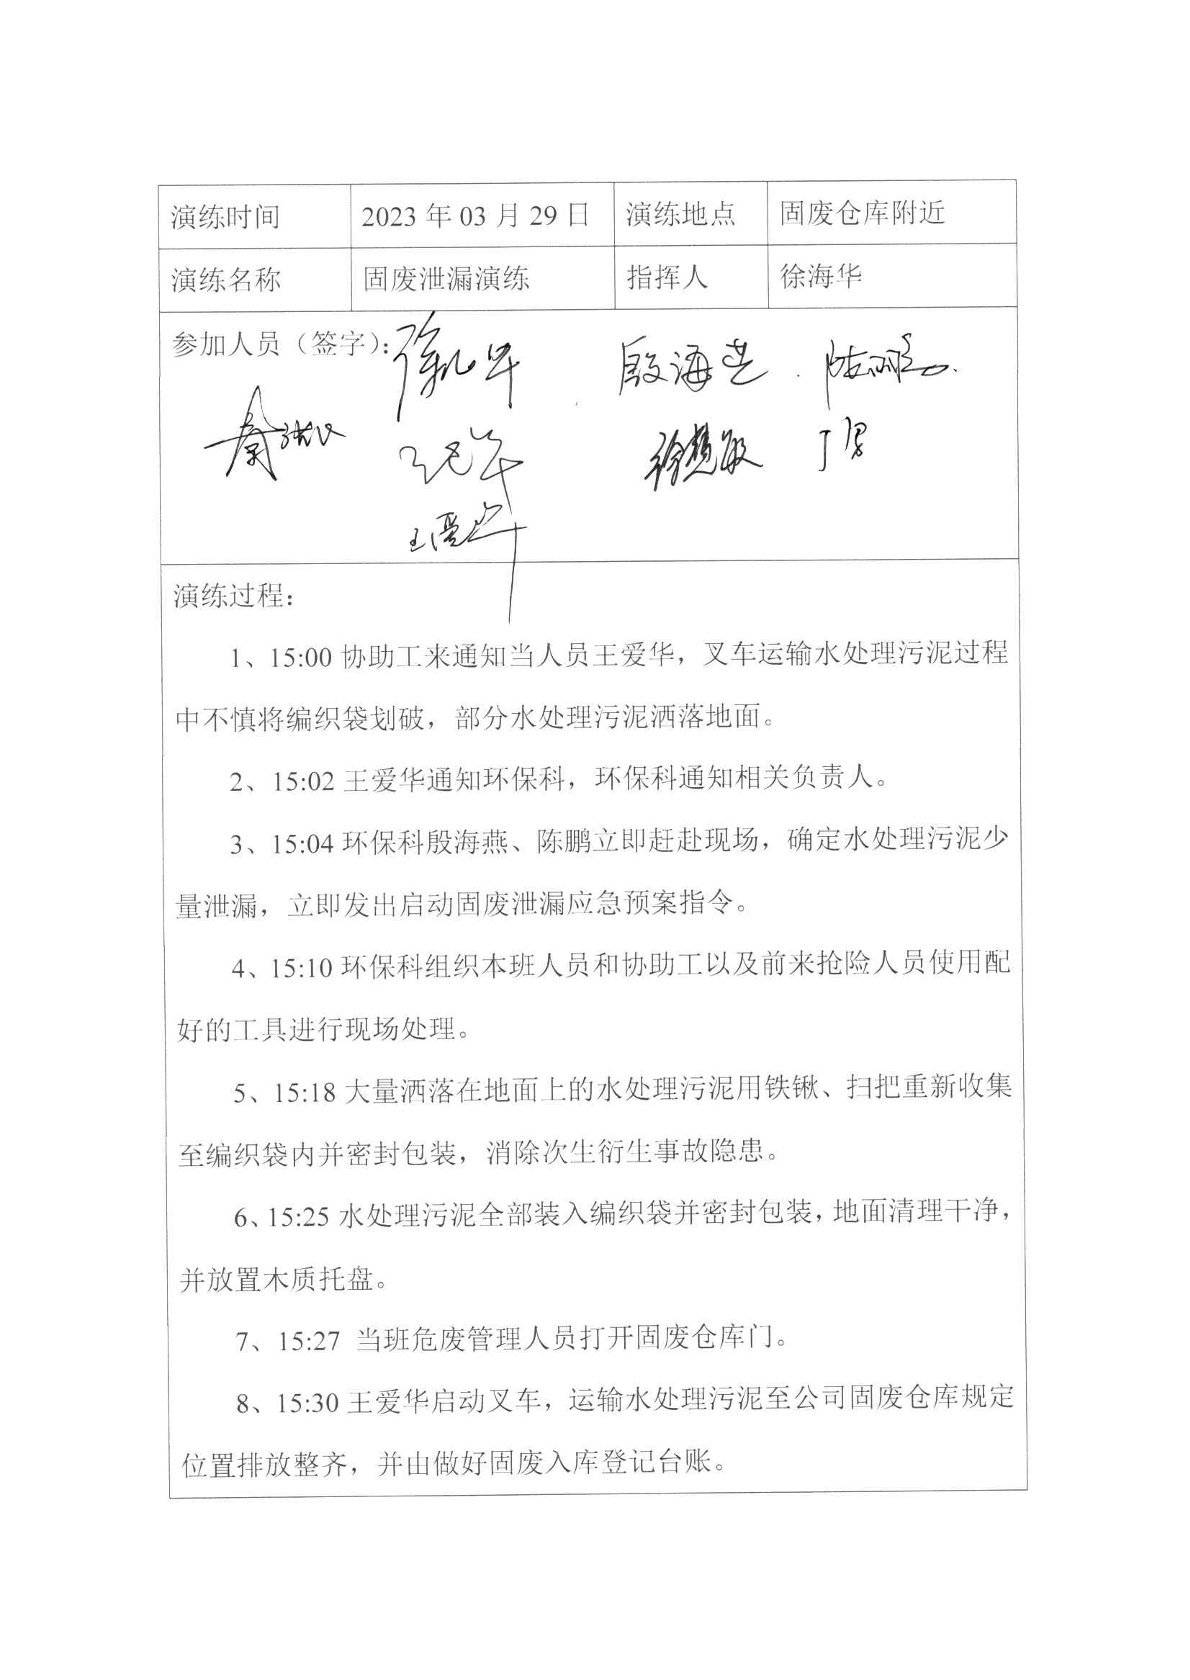 演练时间 2023 年 03 月 29 日 演练地点 固废仓库附近
演练名称 固废泄漏演练 指挥人 徐海华
参加人员（签字）：
殷海燕
徐慧敏
王爱华
演练过程：
1、15:00 协助工来通知当人员王爱华，叉车运输水处理污泥过程
中不慎将编织袋划破，部分水处理污泥洒落地面。
2、15:02 王爱华通知环保科，环保科通知相关负责人。
3、15:04 环保科殷海燕、陈鹏立即赶赴现场，确定水处理污泥少
量泄漏，立即发出启动固废泄漏应急预案指令。
4、15:10 环保科组织本班人员和协助工以及前来抢险人员使用配
好的工具进行现场处理。
5、15:18 大量洒落在地面上的水处理污泥用铁锹、扫把重新收集
至编织袋内并密封包装，消除次生衍生事故隐患。
6、15:25 水处理污泥全部装入编织袋并密封包装，地面清理干净，
并放置木质托盘。
7、15:27 当班危废管理人员打开固废仓库门。
8、15:30 王爱华启动叉车，运输水处理污泥至公司固废仓库规定
位置排放整齐，并由做好固废入库登记台账。